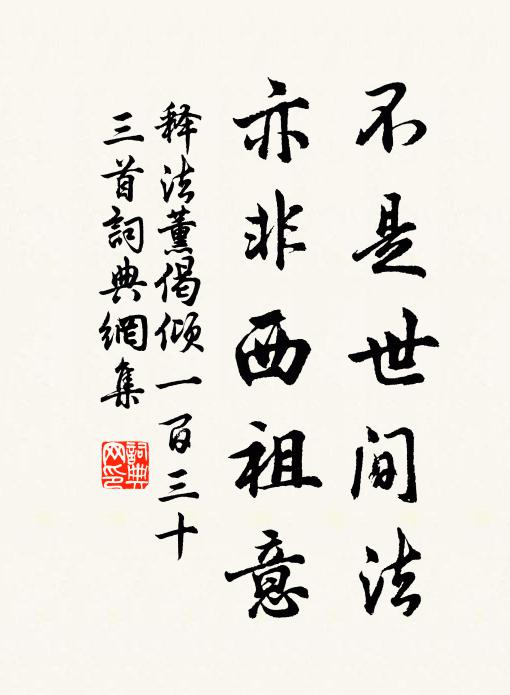 不是世间法
亦非西祖意
释法薰偈倾一百三十
三首詞典網集
詞典網印